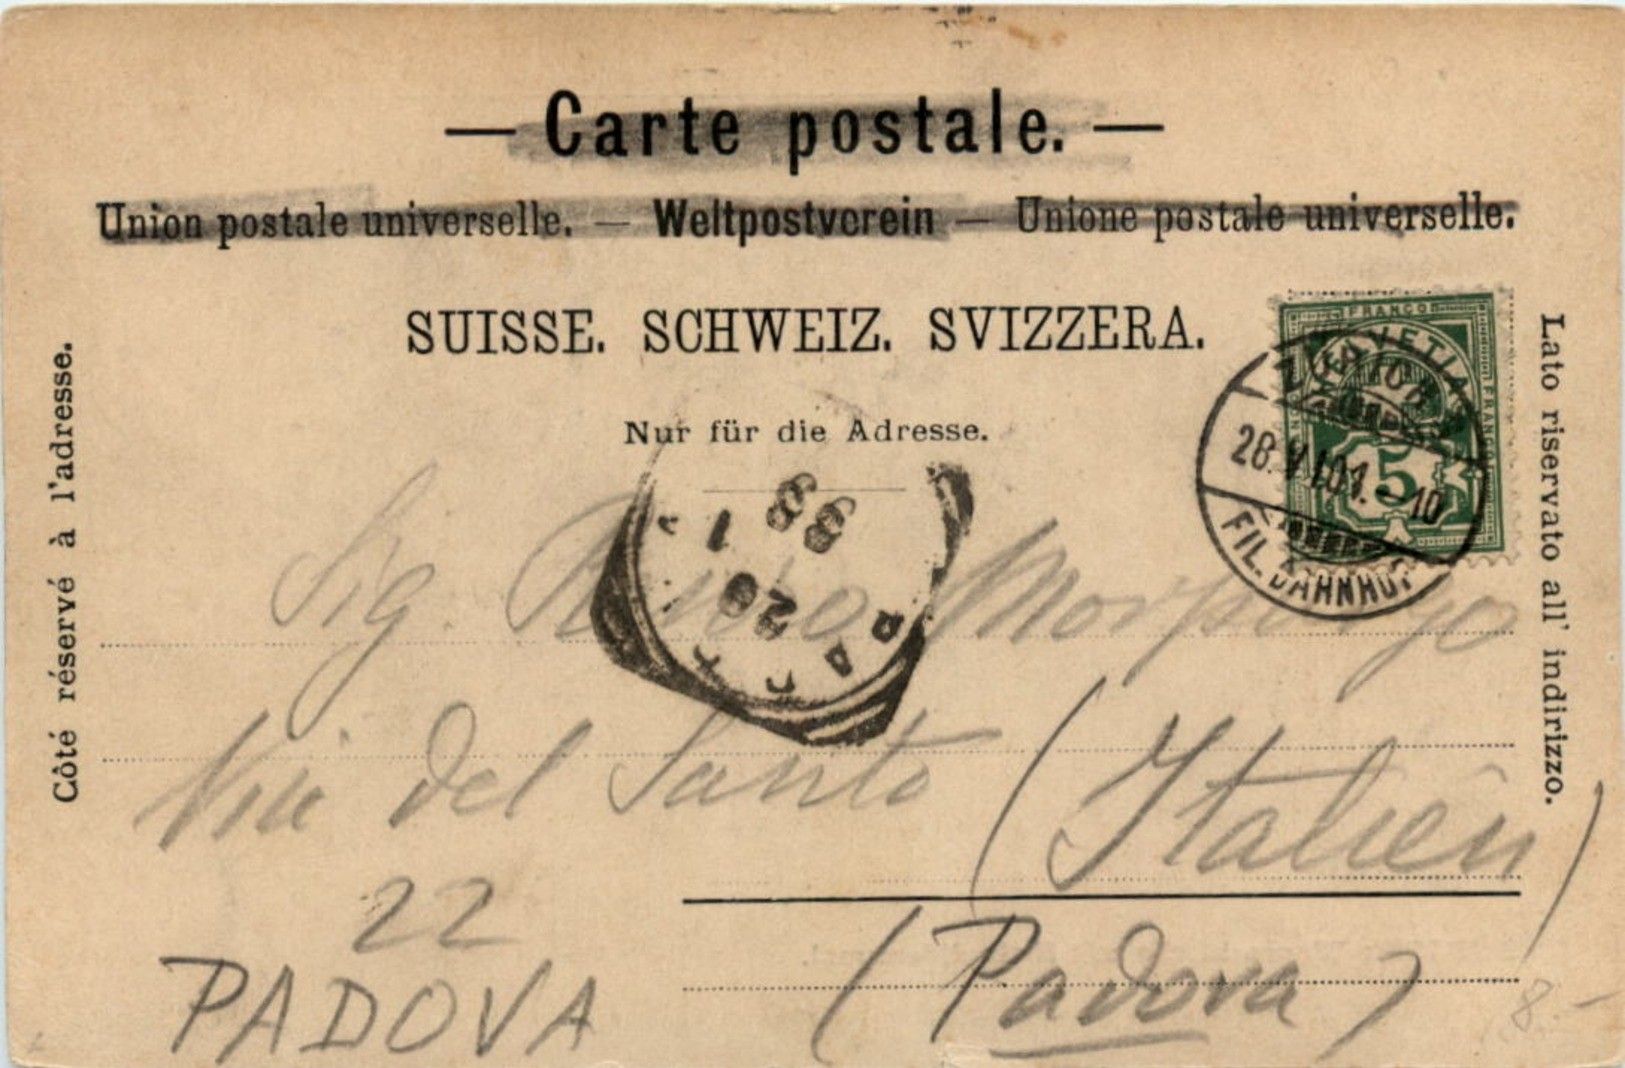 — Carte postale. —
Union postale universelle. — Weltpostverein — Unione postale universelle.
SUISSE. SCHWEIZ. SVIZZERA.
Nur für die Adresse.
Côté réservé à l'adresse.
Lato riservato all' indirizzo.
FRANCO
HELVETIA
FRANCO
5
28.VI.01.-10
FIL. BAHNHOF
Sig. Morpurgo
Via del Santo (Italien)
22
PADOVA (Padova)
8.-